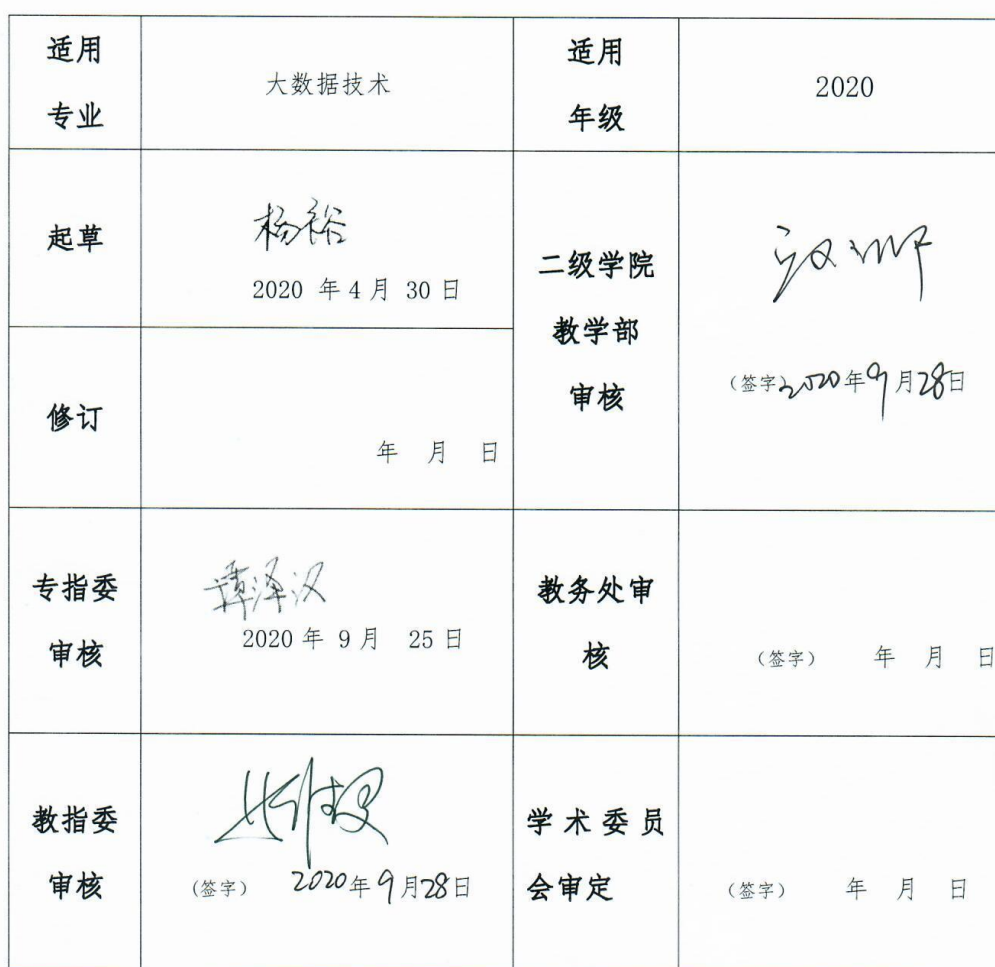 适用
专业
大数据技术
适用
年级
2020
起草
杨裕
2020 年 4 月 30 日
二级学院
教学部
审核
(签字) 2020 年 9 月 28 日
修订
年 月 日
专指委
审核
谭泽汉
2020 年 9 月 25 日
教务处审
核
(签字) 年 月 日
教指委
审核
(签字) 2020 年 9 月 28 日
学术委员
会审定
(签字) 年 月 日